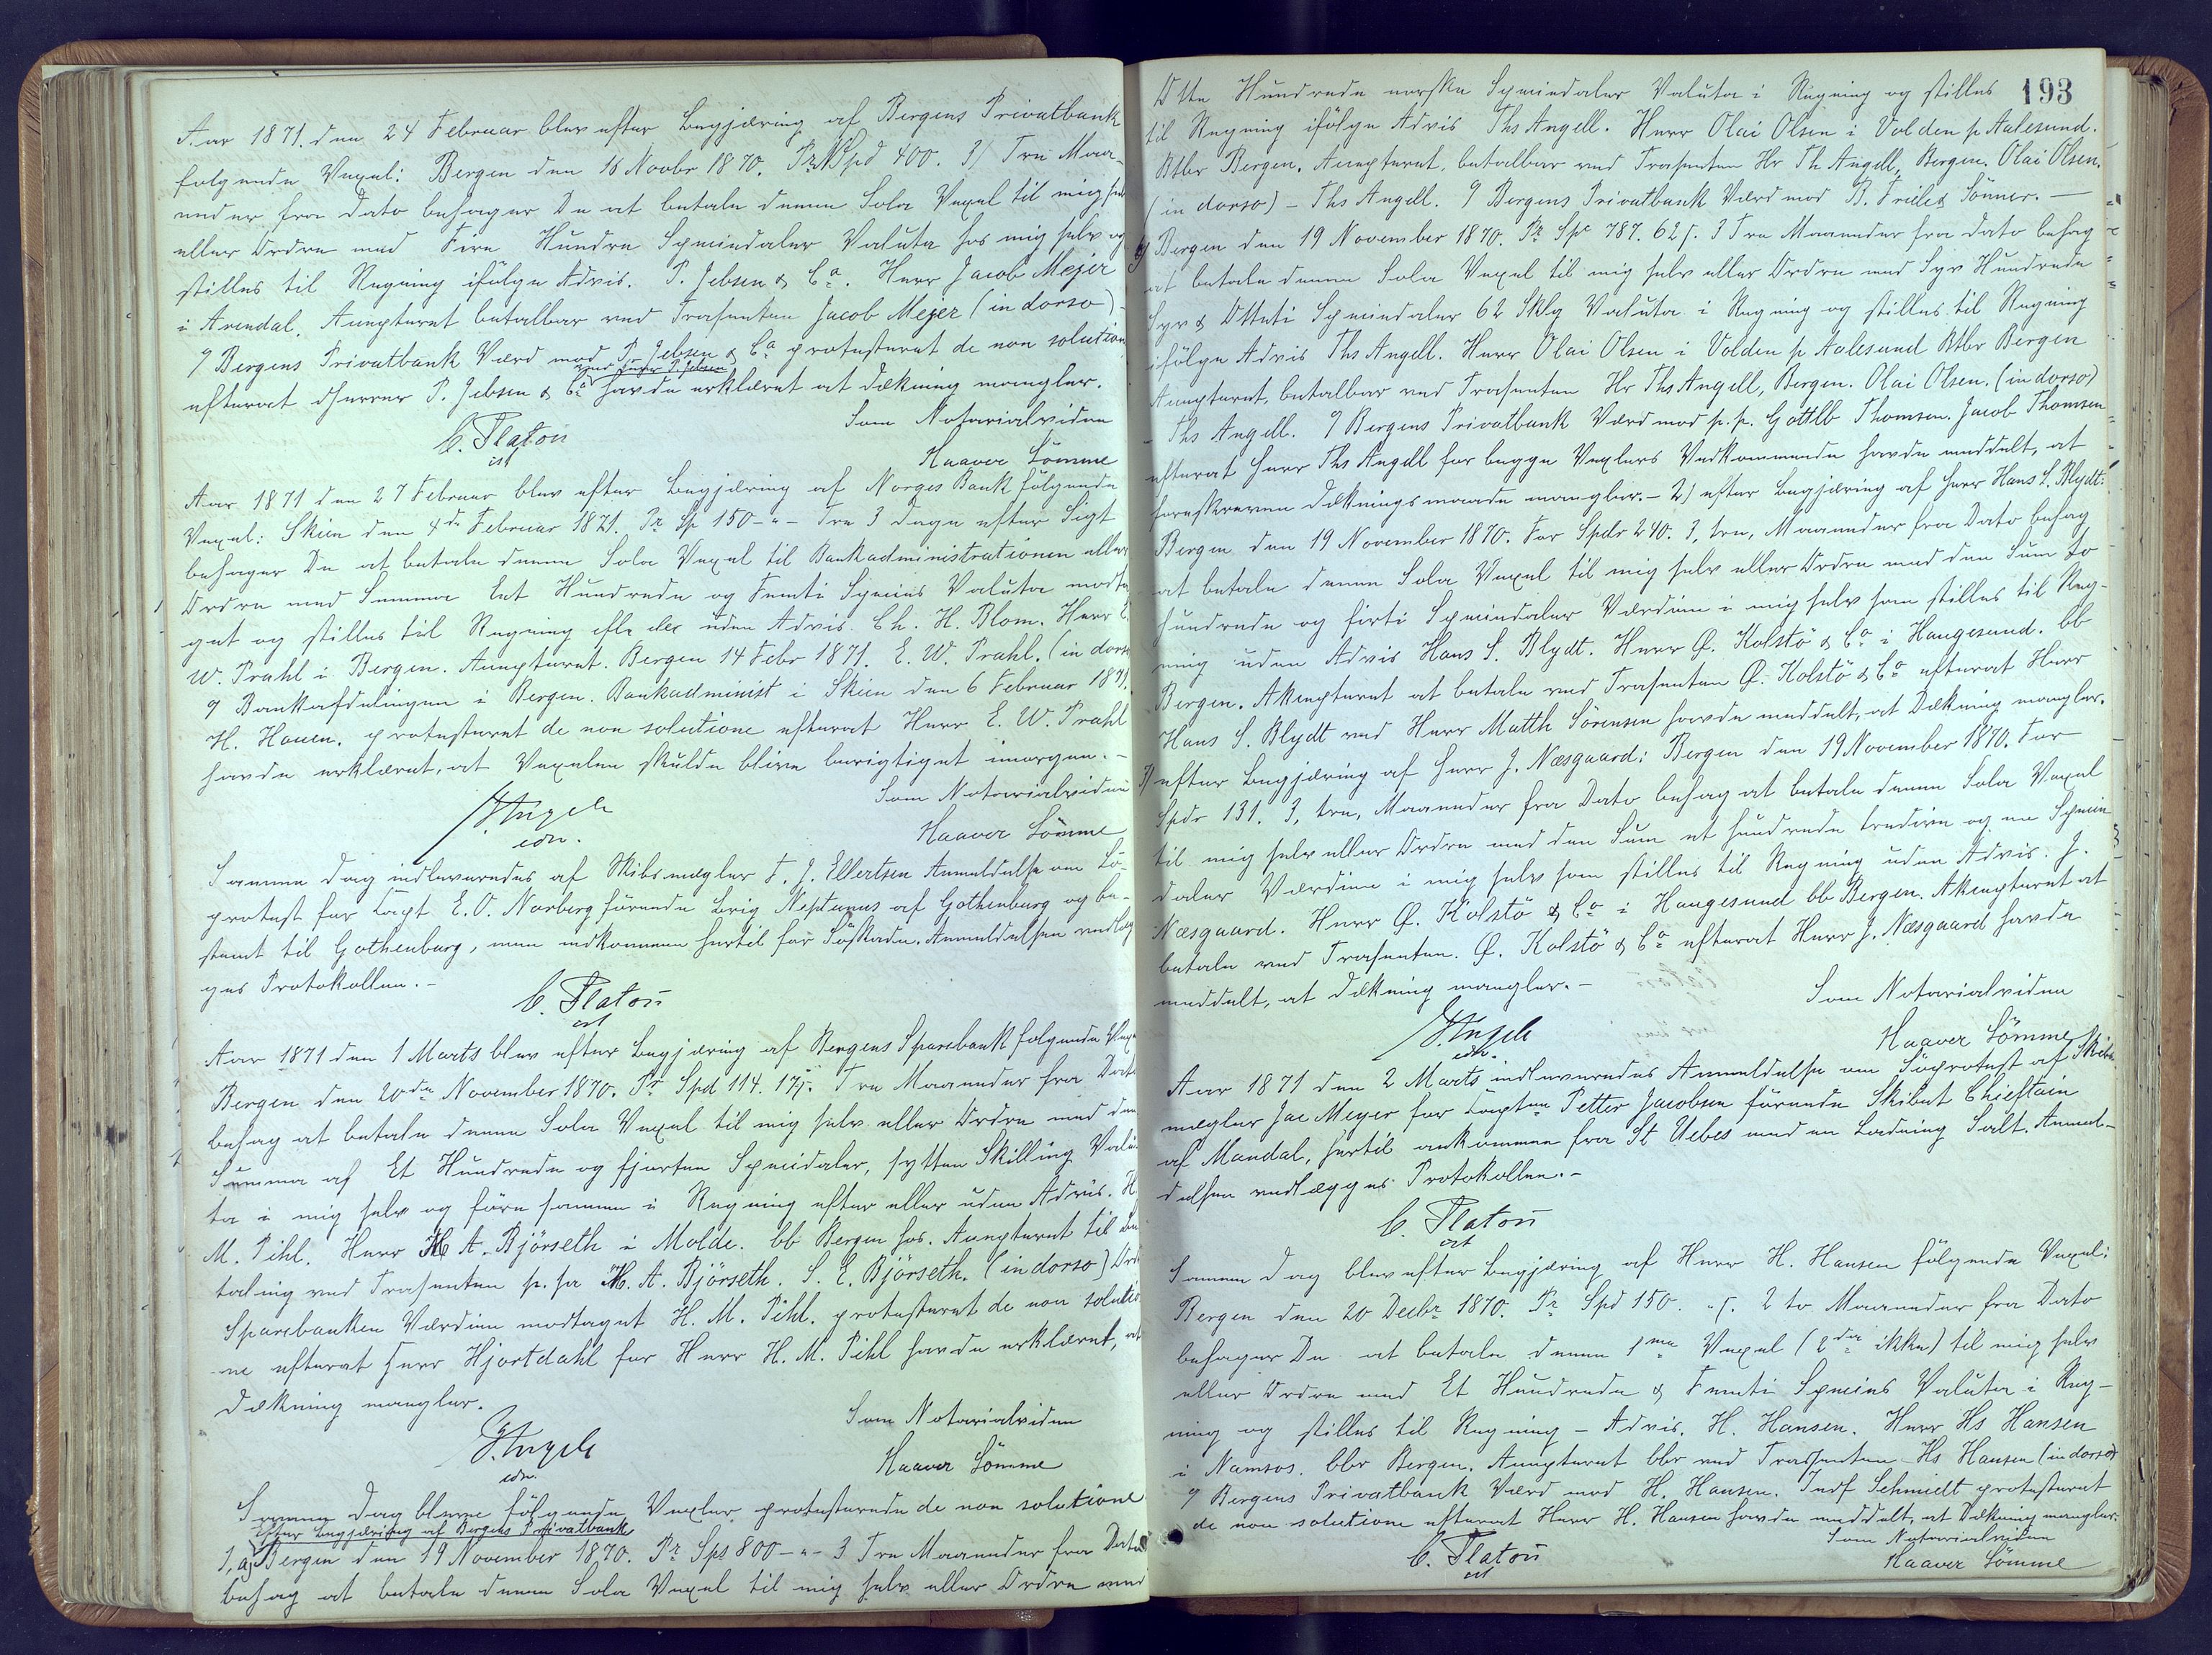 Aar 1871. den 24 Februar blev efter Begjæring af Bergens Privatbank
følgende Vexel: Bergen den 16 Novbr 1870. Pr. NSpd 400. 3/ Tre Maa-
neder fra Dato behager De at betale denne Sola Vexel til mig selv
eller Ordre med Fire Hundre Speciedaler Valuta hos mig selv og
stilles til Regning ifölge Advis. P. Jebsen & Co. Herr Jacob Mejer
i Arendal. Accepteret betalbar ved Trasenten Jacob Mejer (in dorso) -
/ Bergens Privatbank Værd mod P. Jebsen & Co protesteret de non solutione
ved Herr P. Jebsen
efterat Herrer P. Jebsen & Co havde erklæret at Dækning mangler.
Som Notarialvidne
C. Platou
cst
Haaver Lömme
Aar 1871 den 27 Februar blev efter Begjæring af Norges Bank følgende
Vexel: Skien den 4de Februar 1871. Pr Sp 150 - " - Tre 3 Dage efter Sigt
behager De at betale denne Sola Vexel til Bankadministrationen eller
Ordre med Summa Et Hundrede og Femti Species Valuta modta-
get og stilles til Regning eller uden Advis. Ch. H. Blom. Herr E.
W. Prahl i Bergen. Accepteret. Bergen 14 Febr 1871. E. W. Prahl. (in dorso
/ Bankafdelingen i Bergen. Bankadminist i Skien den 6 Februar 1871.
H. Houen. protesteret de non solutione efterat Herr E. W. Prahl
havde erklæret, at Vexelen skulde blive berigtiget imorgen. -
Som Notarialvidne
Haaver Lömme
Samme Dag indleveredes af Skibsmægler F. J. Ellertsen Anmeldelse om Sö-
protest for Capt. E. O. Norberg förende Brig Neptunus af Gothenburg og be-
stemt til Gothenburg, men indkommen hertil for Söskade. Anmeldelsen vedlæg-
ges Protokollen. -
C. Platou
cst
Aar 1871 den 1 Marts blev efter Begjæring af Bergens Sparebank følgende Vexel
Bergen den 20de November 1870. Pr Spd 114. 17 s. Tre Maaneder fra Dato
behag at betale denne Sola Vexel til mig selv eller Ordre med den
Summa af Et Hundrede og fjorten Speciedaler, sytten Skilling Valu-
ta i mig selv og före samme i Regning efter eller uden Advis. H.
M. Pihl. Herr H. A. Björseth i Molde. bb Bergen hos. Accepteret til Be-
taling ved Trasenten p. pa H. A. Björseth. S. E. Björseth. (in dorso) Ordre
Sparebanken Værdien modtaget H. M. Pihl. protesteret de non solutio-
ne efterat Herr Hjortdahl for Herr H. M. Pihl havde erklæret, at
Dækning mangler.
Som Notarialvidne
Haaver Lömme
Samme Dag bleve følgende Vexler protesterede de non solutione
efter Begjæring af Bergens Privatbank
1, a) Bergen den 19 November 1870. Pr Sps 800 - " - 3 Tre Maaneder fra Dato
behag at betale denne Sola Vexel til mig selv eller Ordre med
193
Otte Hundrede norske Speciedaler Valuta i Regning og stilles
til Regning ifölge Advis Ths Angell. Herr Olai Olsen i Volden p Aalesund.
Btlbr Bergen. Accepteret, betalbar ved Trasenten Hr Th Angell, Bergen. Olai Olsen.
(in dorso) - Ths Angell. / Bergens Privatbank Værd mod B. Friele & Sönner. -
b) Bergen den 19 November 1870. Pr Spe 787. 62 s. 3 Tre Maaneder fra Dato behag
at betale denne Sola Vexel til mig selv eller Ordre med Syv Hundrede
Syv & Otteti Speciedaler 62 Skllg Valuta i Regning og stilles til Regning
ifölge Advis Ths Angell. Herr Olai Olsen i Volden p Aalesund Btlbr Bergen
Accepteret, betalbar ved Trasenten Hr Ths Angell, Bergen. Olai Olsen. (in dorso)
- Ths Angell. / Bergens Privatbank Værd mod p. p. Gottlb Thomsen. Jacob Thomsen
efterat Herr Ths Angell for begge Vexlers Vedkommende havde meddelt, at
foreskreven Dækningsmaade mangler. - 2) efter Begjæring af Herr Hans S. Blydt:
Bergen den 19 November 1870. For Spdr 240. 3, tre, Maaneder fra Dato behag
at betale denne Sola Vexel til mig selv eller Ordre med den Sum to
hundrede og firti Speciedaler Værdien i mig selv som stilles til Reg-
ning uden Advis Hans S. Blydt. Herr Ø. Kolstö & Co i Haugesund. bb
Bergen. Akcepteret at betale ved Trasenten Ø. Kolstö & Co efterat Herr
Hans S. Blydt ved Herr Matth Sörensen havde meddelt, at Dækning mangler.
3) efter Begjæring af Herr J. Næsgaard: Bergen den 19 November 1870. For
Spdr 131. 3, tre, Maaneder fra Dato behag at betale denne Sola Vexel
til mig selv eller Ordre med den Sum et hundrede tredive og en Specie-
daler Værdien i mig selv som stilles til Regning uden Advis. J.
Næsgaard. Herr Ø. Kolstö & Co i Haugesund bb Bergen. Akcepteret at
betale ved Trasenten. Ø. Kolstö & Co efterat Herr J. Næsgaard havde
meddelt, at Dækning mangler. -
Som Notarialvidne
Haaver Lömme
Aar 1871 den 2 Marts indleveredes Anmeldelse om Söeprotest af Skibs-
mægler Jac Meyer for Captn Petter Jacobsen förende Skibet Chieftain
af Mandal, hertil ankommen fra St Uebes med en Ladning Salt. Anmel-
delsen vedlægges Protokollen. -
C. Platou
cst
Samme Dag blev efter Begjæring af Herr H. Hansen følgende Vexel:
Bergen den 20 Decbr 1870. Pr Spd 150. " s. 2 to Maaneder fra Dato
behager De at betale denne 1me Vexel (2den ikke) til mig selv
eller Ordre med Et Hundrede & Femti Species Valuta i Reg-
ning og stilles til Regning - Advis. H. Hansen. Herr Hs Hansen
i Namsos. bbr Bergen. Accepteret bbr ved Trasenten Hs Hansen (in dorso)
/ Bergens Privatbank Værd mod H. Hansen. Indf Schmidt protesteret
de non solutione efterat Herr H. Hansen havde meddelt, at Dækning mangler.
Som Notarialvidne
C. Platou
cst
Haaver Lömme